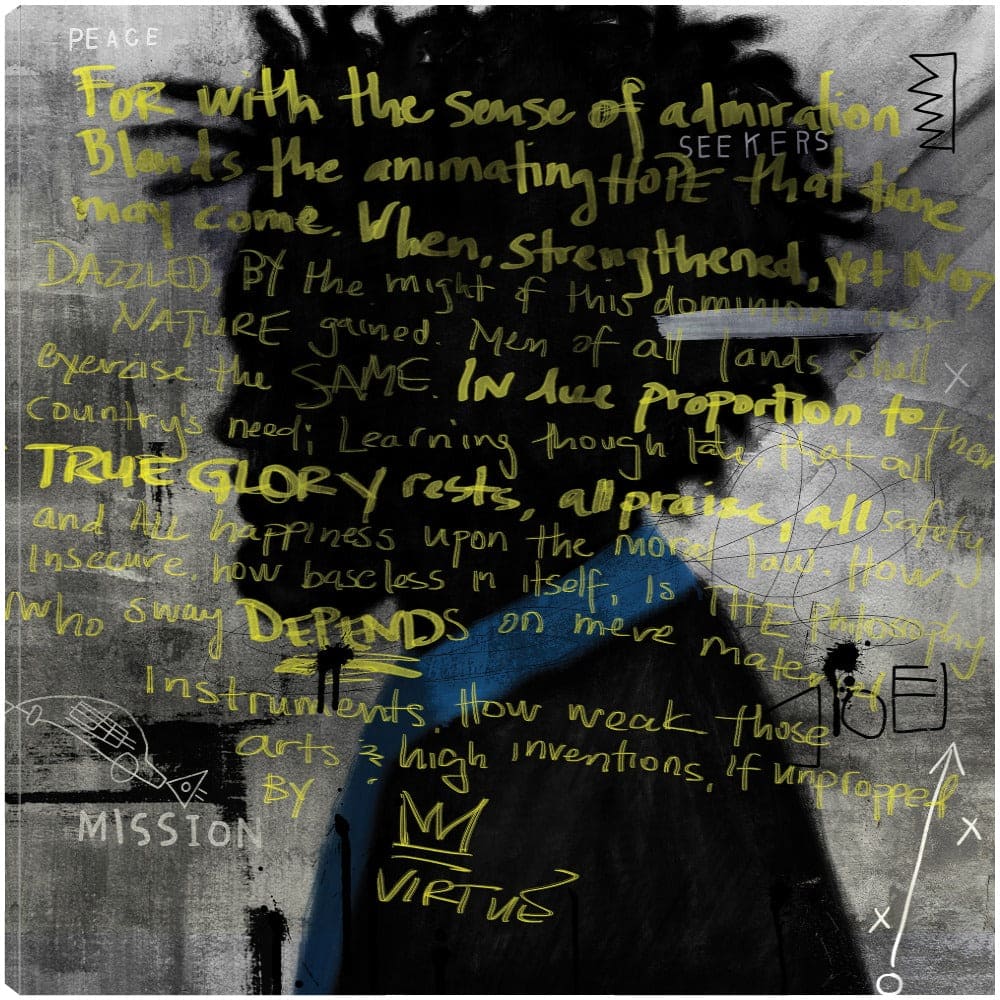 PEACE
FOR with the sense of admiration
SEEKERS
Blends the animating HOPE that time
may come. When, strengthened, yet NOT
DAZZLED, BY the might of this dominion over
NATURE gained. Men of all lands shall
exercise the SAME. IN due proportion to their
country's need; Learning though late, that all
TRUE GLORY rests, all praise, all safety
and All happiness upon the moral law. How
Insecure, how baseless in itself, Is THE Philosophy
Who sway DEPENDS on mere material
Instruments. How weak those
arts & high inventions, if unpropped
BY
MISSION
VIRTUE
X
X
X